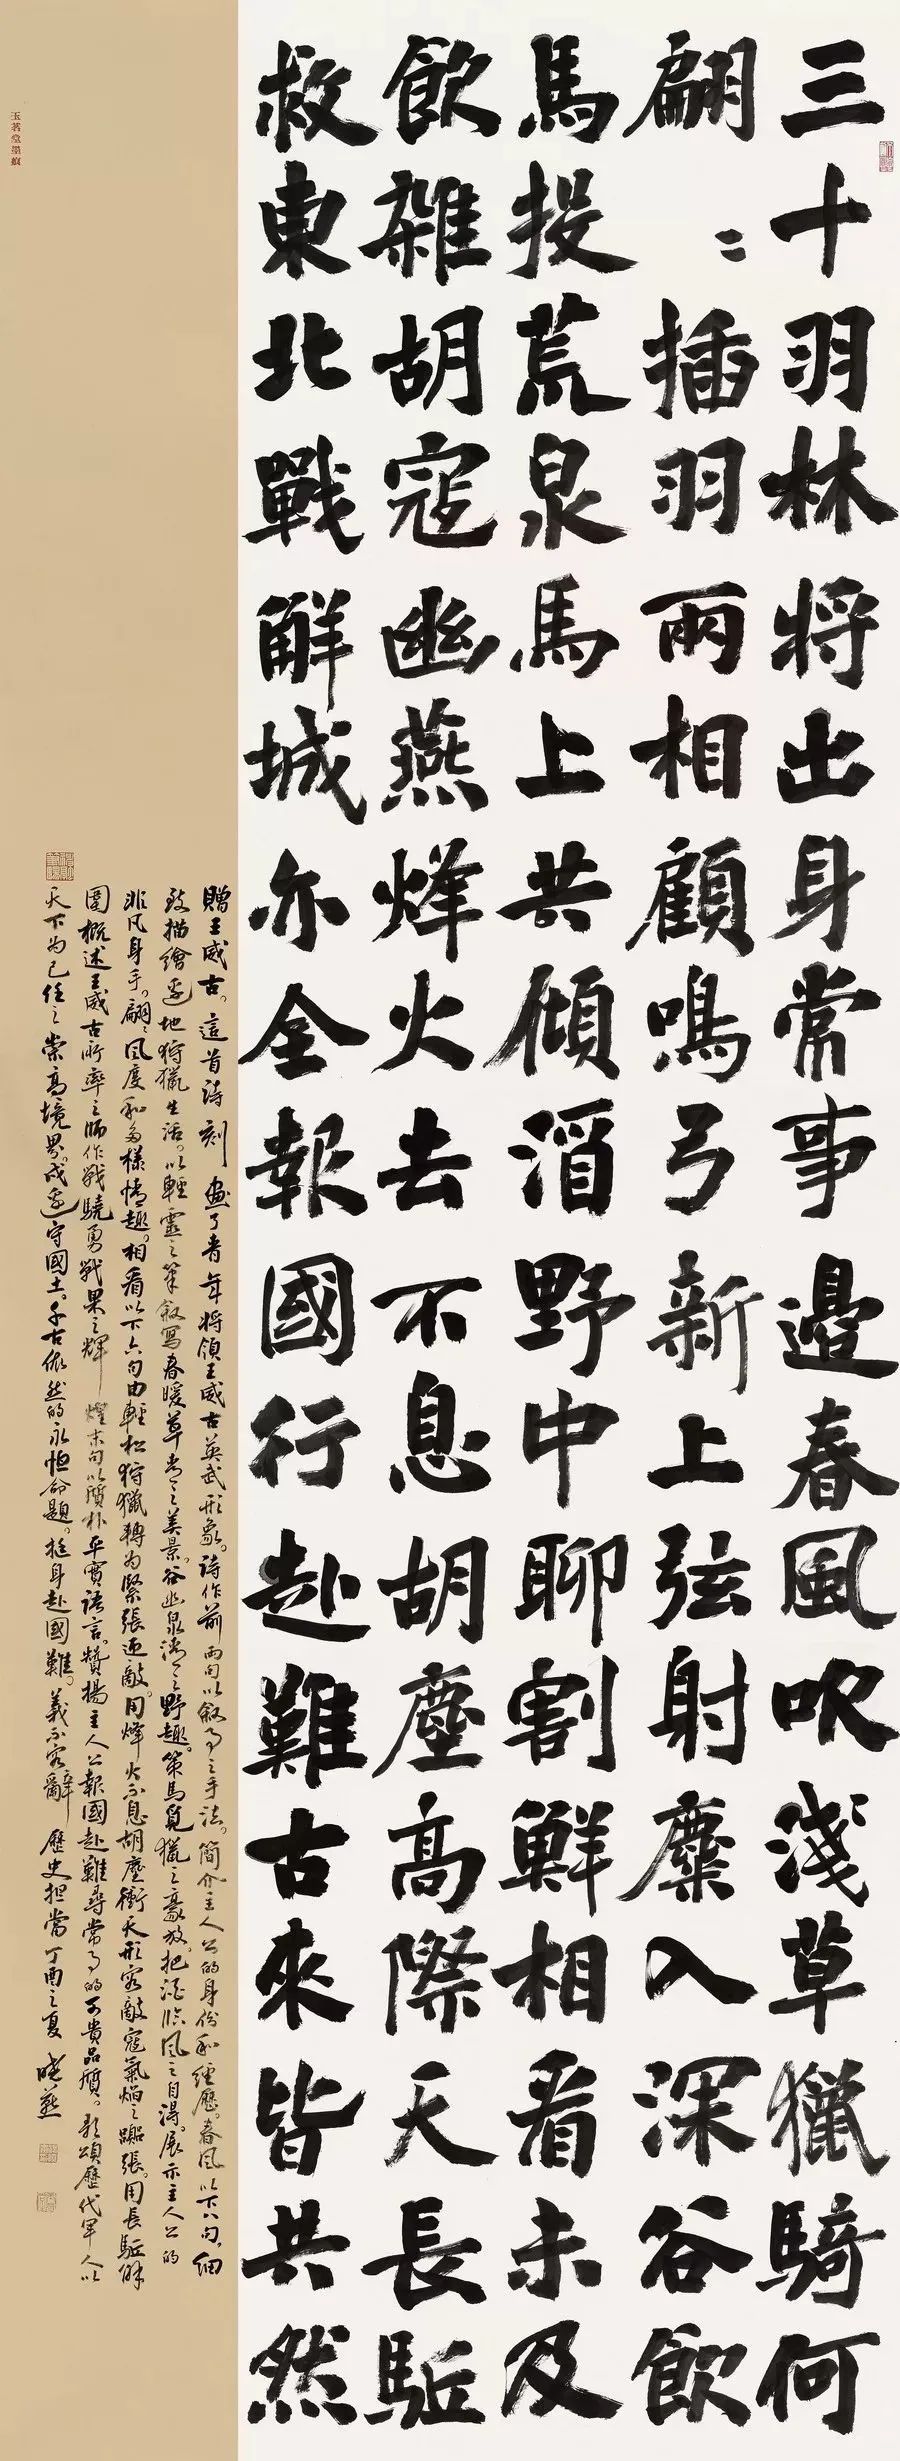 三十羽林將出身常事邊春風吹淺草獵騎何
翩〻插羽兩相顧鳴弓新上弦射麋入深谷飲
馬投荒泉馬上共傾酒野中聊割鮮相看未及
飲雜胡寇幽燕烽火去不息胡塵高際天長驅
救東北戰解城亦全報國行赴難古來皆共然
贈王威古。這首詩刻畫了青年將領王威古英武形象。詩作前兩句以敘事之手法。簡介主人公的身份和經歷。春風以下八句。細
致描繪邊地狩獵生活。以輕靈之筆敘寫春暖草青之美景。谷幽泉清之野趣。策馬覓獵之豪放。把酒臨風之自得。展示主人公的
非凡身手。翩〻風度和多樣情趣。相看以下六句由輕松狩獵轉為緊張迎敵。用烽火不息胡塵衝天形容敵寇氣焰之囂張。用長驅解
圍概述王威古所率之師作戰驍勇戰果之輝煌末句以質朴平實語言。贊揚主人公報國赴難尋常事的可貴品質。歌頌歷代軍人以
天下為己任之崇高境界。戍邊守國土。千古依然的永恒命題。挺身赴國難。義不容辭歷史担當丁酉之夏曉燕
玉茗堂墨痕